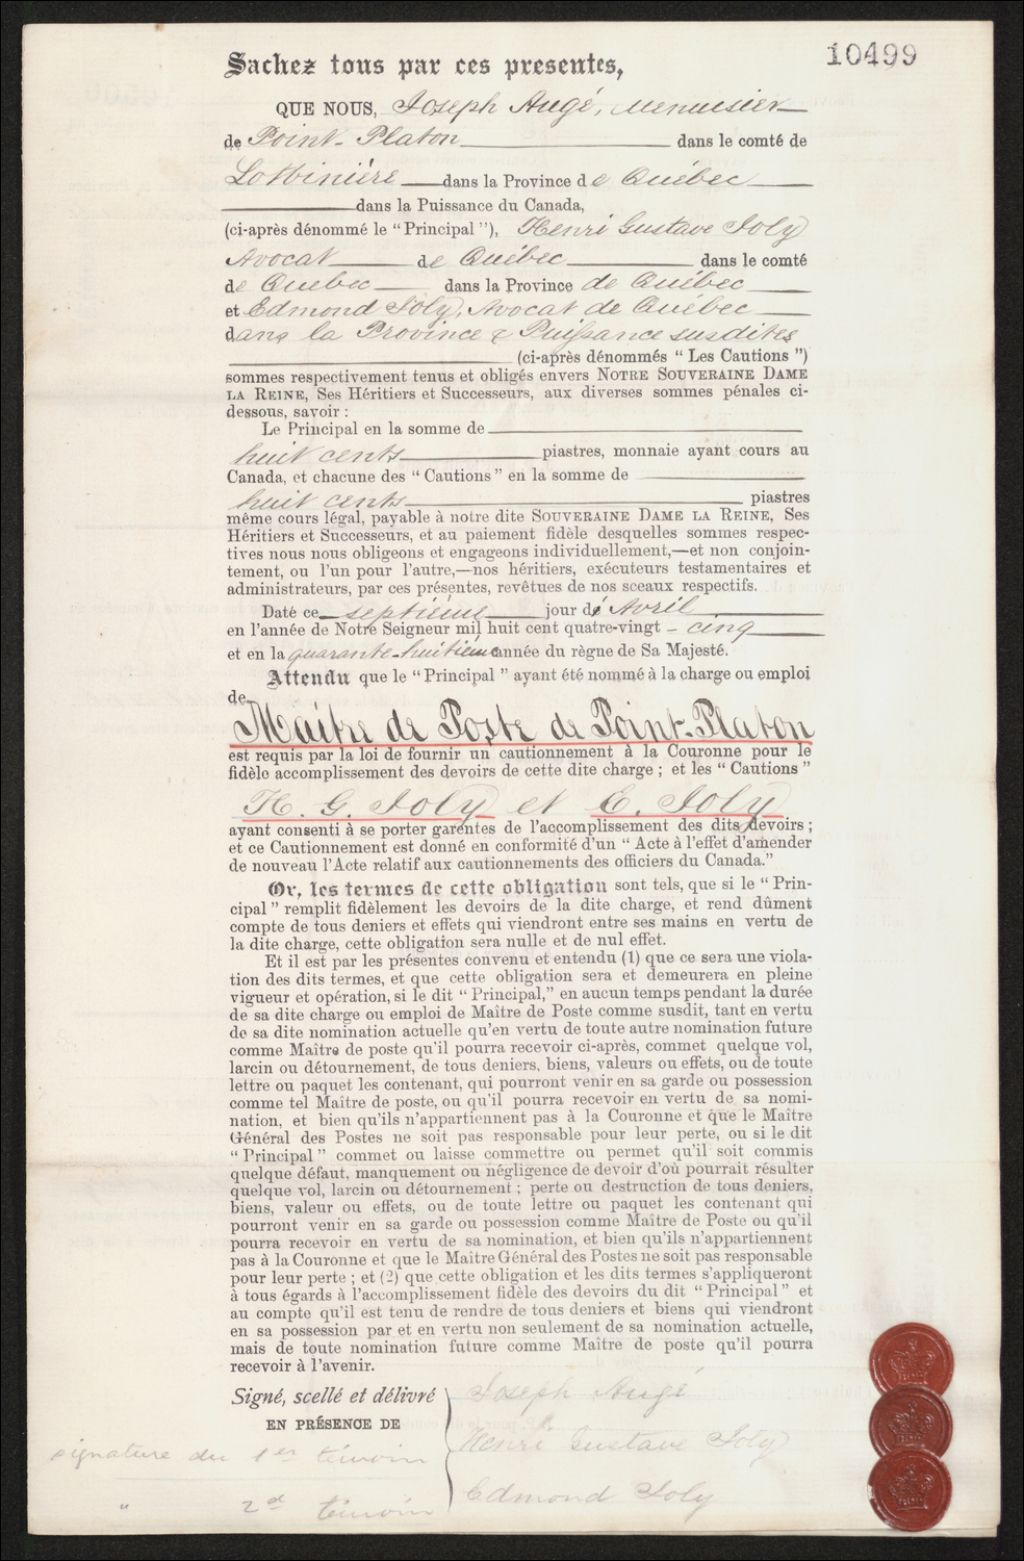 10499
Sachez tous par ces presentes,
QUE NOUS, Joseph Augé, Menuisier
de Point-Platon dans le comté de
Lotbinière dans la Province de Québec
dans la Puissance du Canada,
(ci-après dénommé le “Principal”), Henri Gustave Joly
Avocat de Québec dans le comté
de Quebec dans la Province de Québec
et Edmond Joly, Avocat de Québec
dans la Province & Puissance susdites
(ci-après dénommés “ Les Cautions ”)
sommes respectivement tenus et obligés envers NOTRE SOUVERAINE DAME
LA REINE, Ses Héritiers et Successeurs, aux diverses sommes pénales ci-
dessous, savoir :
Le Principal en la somme de
huit cents piastres, monnaie ayant cours au
Canada, et chacune des “ Cautions ” en la somme de
huit cents piastres
même cours légal, payable à notre dite SOUVERAINE DAME LA REINE, Ses
Héritiers et Successeurs, et au paiement fidèle desquelles sommes respec-
tives nous nous obligeons et engageons individuellement,—et non conjoin-
tement, ou l'un pour l'autre,—nos héritiers, exécuteurs testamentaires et
administrateurs, par ces présentes, revêtues de nos sceaux respectifs.
Daté ce septième jour de Avril
en l'année de Notre Seigneur mil huit cent quatre-vingt - cinq
et en la quarante-huitième année du règne de Sa Majesté.
Attendu que le “ Principal ” ayant été nommé à la charge ou emploi
de
Maitre de Poste de Point-Platon
est requis par la loi de fournir un cautionnement à la Couronne pour le
fidèle accomplissement des devoirs de cette dite charge ; et les “ Cautions ”
H. G. Joly et E. Joly
ayant consenti à se porter garentes de l'accomplissement des dits devoirs ;
et ce Cautionnement est donné en conformité d'un “ Acte à l'effet d'amender
de nouveau l'Acte relatif aux cautionnements des officiers du Canada.”
Or, les termes de cette obligation sont tels, que si le “ Prin-
cipal ” remplit fidèlement les devoirs de la dite charge, et rend dûment
compte de tous deniers et effets qui viendront entre ses mains en vertu de
la dite charge, cette obligation sera nulle et de nul effet.
Et il est par les présentes convenu et entendu (1) que ce sera une viola-
tion des dits termes, et que cette obligation sera et demeurera en pleine
vigueur et opération, si le dit “ Principal,” en aucun temps pendant la durée
de sa dite charge ou emploi de Maître de Poste comme susdit, tant en vertu
de sa dite nomination actuelle qu'en vertu de toute autre nomination future
comme Maître de poste qu'il pourra recevoir ci-après, commet quelque vol,
larcin ou détournement, de tous deniers, biens, valeurs ou effets, ou de toute
lettre ou paquet les contenant, qui pourront venir en sa garde ou possession
comme tel Maître de poste, ou qu'il pourra recevoir en vertu de sa nomi-
nation, et bien qu'ils n'appartiennent pas à la Couronne et que le Maître
Général des Postes ne soit pas responsable pour leur perte, ou si le dit
“ Principal ” commet ou laisse commettre ou permet qu'il soit commis
quelque défaut, manquement ou négligence de devoir d'où pourrait résulter
quelque vol, larcin ou détournement ; perte ou destruction de tous deniers,
biens, valeur ou effets, ou de toute lettre ou paquet les contenant qui
pourront venir en sa garde ou possession comme Maître de Poste ou qu'il
pourra recevoir en vertu de sa nomination, et bien qu'ils n'appartiennent
pas à la Couronne et que le Maître Général des Postes ne soit pas responsable
pour leur perte ; et (2) que cette obligation et les dits termes s'appliqueront
à tous égards à l'accomplissement fidèle des devoirs du dit “ Principal ” et
au compte qu'il est tenu de rendre de tous deniers et biens qui viendront
en sa possession par et en vertu non seulement de sa nomination actuelle,
mais de toute nomination future comme Maître de poste qu'il pourra
recevoir à l'avenir.
Signé, scellé et délivré Joseph Augé
EN PRÉSENCE DE
Henri Gustave Joly
signature du 1er témoin
Edmond Joly
" 2d témoin